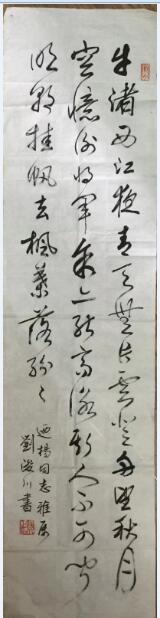 牛渚西江夜青天無片雲登舟望秋月
空憶謝將軍余亦能高詠斯人不可聞
明朝挂帆去楓葉落紛々
同志雅屬
劉浚川書